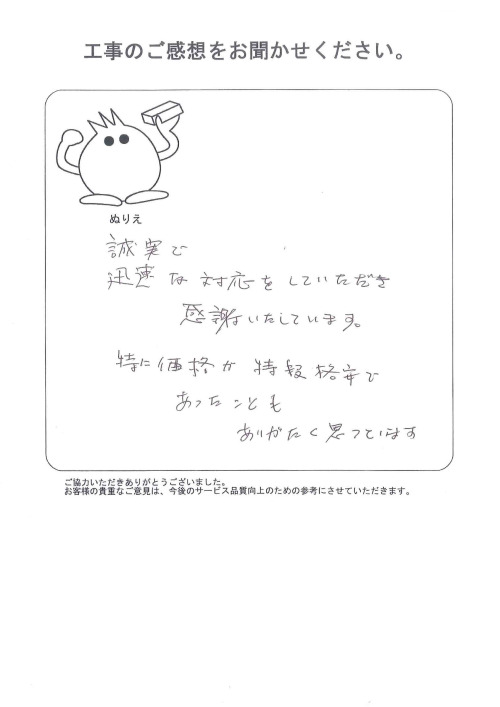 工事のご感想をお聞かせください。
ぬりえ
誠実で
迅速な対応をしていただき
感謝いたしています。
特に価格が特段格安で
あったことも
ありがたく思っています
ご協力いただきありがとうございました。
お客様の貴重なご意見は、今後のサービス品質向上のための参考にさせていただきます。